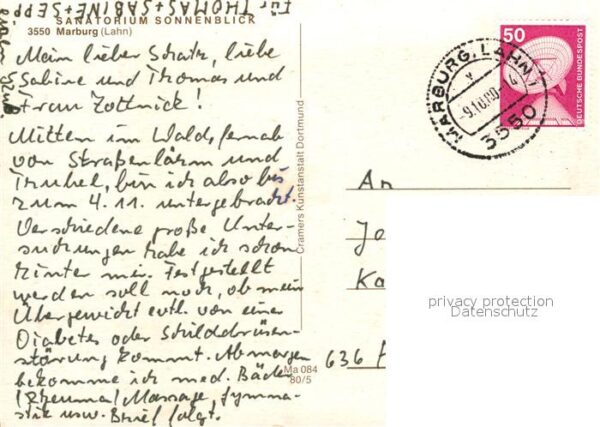 Für THOMAS+SABINE+SEPP
SANATORIUM SONNENBLICK
3550 Marburg (Lahn)
Mein lieber Schatz, liebe
Sabine und Thomas und
Frau Zottnick!
Mitten im Wald, fernab
von Straßenlärm und
Trubel, bin ich also bis
zum 4. 11. untergebracht.
Verschiedene große Unter-
suchungen habe ich schon
hinter mir. Festgestellt
werden soll noch, ob mein
Übergewicht evtl. von einer
Diabetes oder Schilddrüsen-
störung kommt. Ab morgen
bekomme ich med. Bäder
(Rheuma) Massage, Gymna-
stik usw. Brief folgt.
Cramers Kunstanstalt Dortmund
Ma 084
80/5
50
DEUTSCHE BUNDESPOST
MARBURG, LAHN 1
-9.10.80
3550
An
Je
Ka
636
privacy protection
Datenschutz